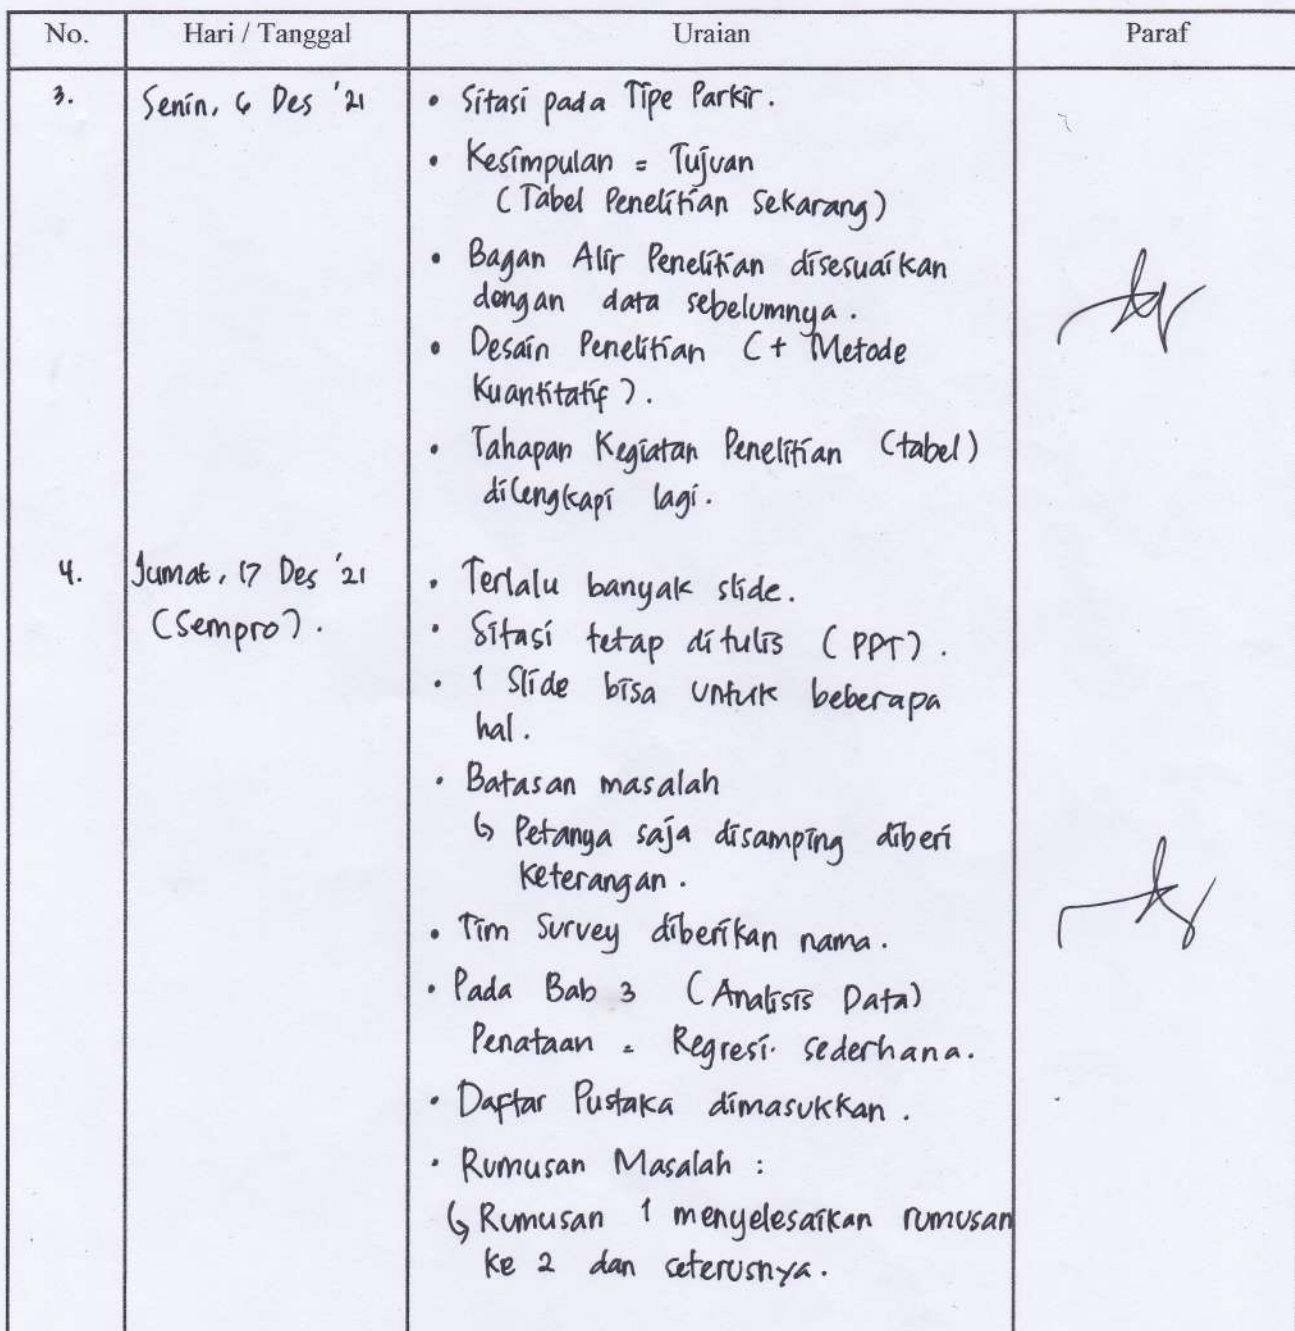 No. Hari / Tanggal Uraian Paraf
3. Senin, 6 Des '21 • Sitasi pada Tipe Parkir.
• Kesimpulan = Tujuan
(Tabel Penelitian Sekarang)
• Bagan Alir Penelitian disesuaikan
dengan data sebelumnya.
• Desain Penelitian (+ Metode
Kuantitatif).
• Tahapan Kegiatan Penelitian (tabel)
dilengkapi lagi.
4. Jumat, 17 Des '21 • Terlalu banyak slide.
(Sempro). • Sitasi tetap ditulis (PPT).
• 1 Slide bisa untuk beberapa
hal.
• Batasan masalah
↳ Petanya saja disamping diberi
keterangan.
• Tim Survey diberikan nama.
• Pada Bab 3 (Analisis Data)
Penataan = Regresi sederhana.
• Daftar Pustaka dimasukkan.
• Rumusan Masalah :
↳ Rumusan 1 menyelesaikan rumusan
ke 2 dan seterusnya.